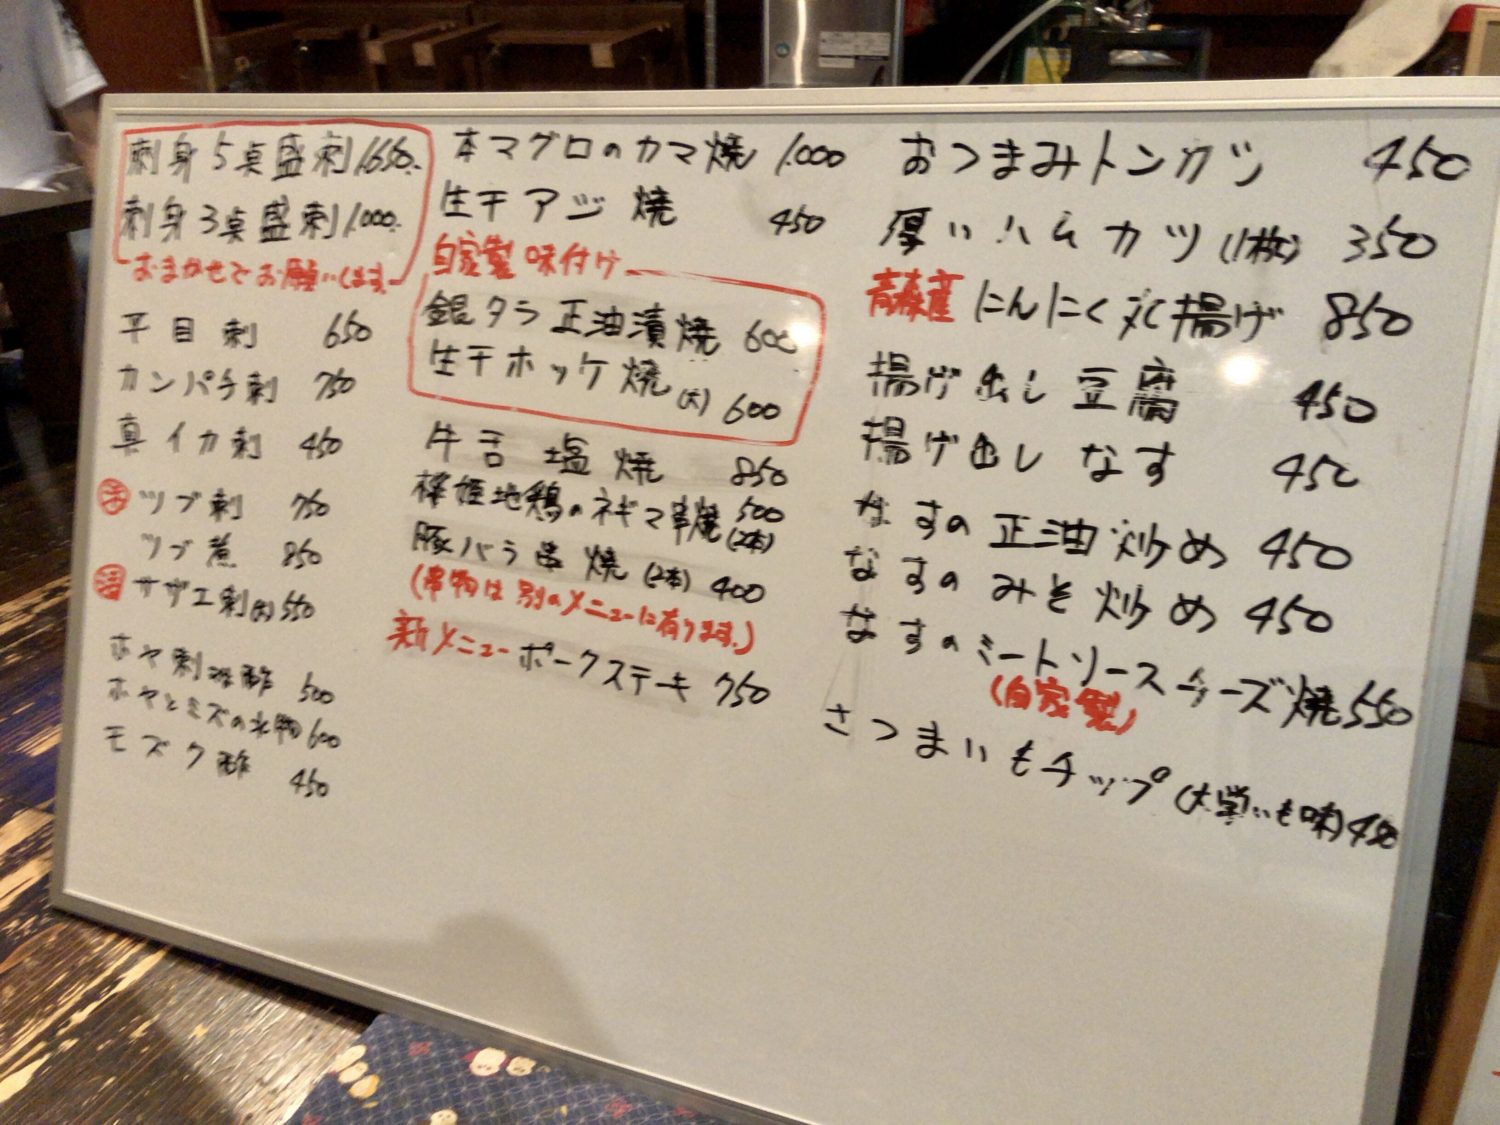 刺身5点盛刺 1,650.
刺身3点盛刺 1,000.
おまかせでお願いします。
平目刺 650
カンパチ刺 750
真イカ刺 450
活 ツブ刺 750
ツブ煮 850
活 サザエ刺(大) 550
ホヤ刺 酢 500
ホヤとミズの水物 600
モズク酢 450
本マグロのカマ焼 1,000
生干アジ焼 450
自家製味付け
銀タラ正油漬焼 600
生干ホッケ焼(大) 600
牛舌塩焼 850
桜姫地鶏のネギマ串焼(2本) 500
豚バラ串焼(2本) 400
(串物は別のメニューに有ります。)
新メニュー ポークステーキ 750
おつまみトンカツ 450
厚いハムカツ(1枚) 350
青森産 にんにく丸揚げ 850
揚げ出し豆腐 450
揚げ出しなす 450
なすの正油炒め 450
なすのみそ炒め 450
なすのミートソースチーズ焼 550
(自家製)
さつまいもチップ(大学いも味) 450